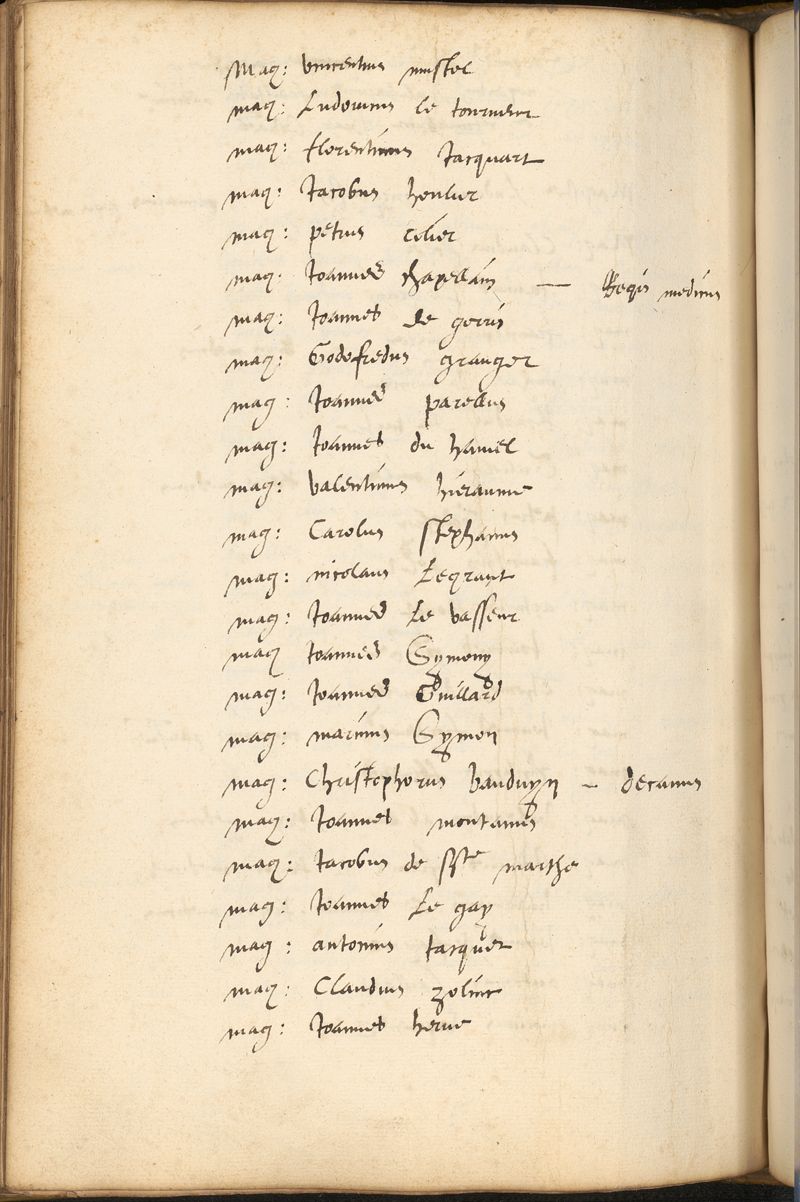 Mag: vincentius mustel
mag: Ludovicus le tourneur
mag: florentinus Jacquart
mag: Jacobus houlier
mag: petrus celier
mag: Joannes chapellain — Regis medicus
mag: Joannes de gorris
mag: Godofredus granger
mag: Joannes parellus
mag: Joannes du hamel
mag: valentinus hieraume
mag: Carolus stephanus
mag: nicolaus Legrant
mag: Joannes Le vasseur
mag Joannes Symony
mag: Joannes Guillard
mag: marinus Symon
mag: Christophorus bauduyn – decanus
mag: Joannes montanus
mag: Jacobus de ste marthe
mag: Joannes Le gay
mag: antonius tacquet
mag: Claudius
mag: Joannes herve